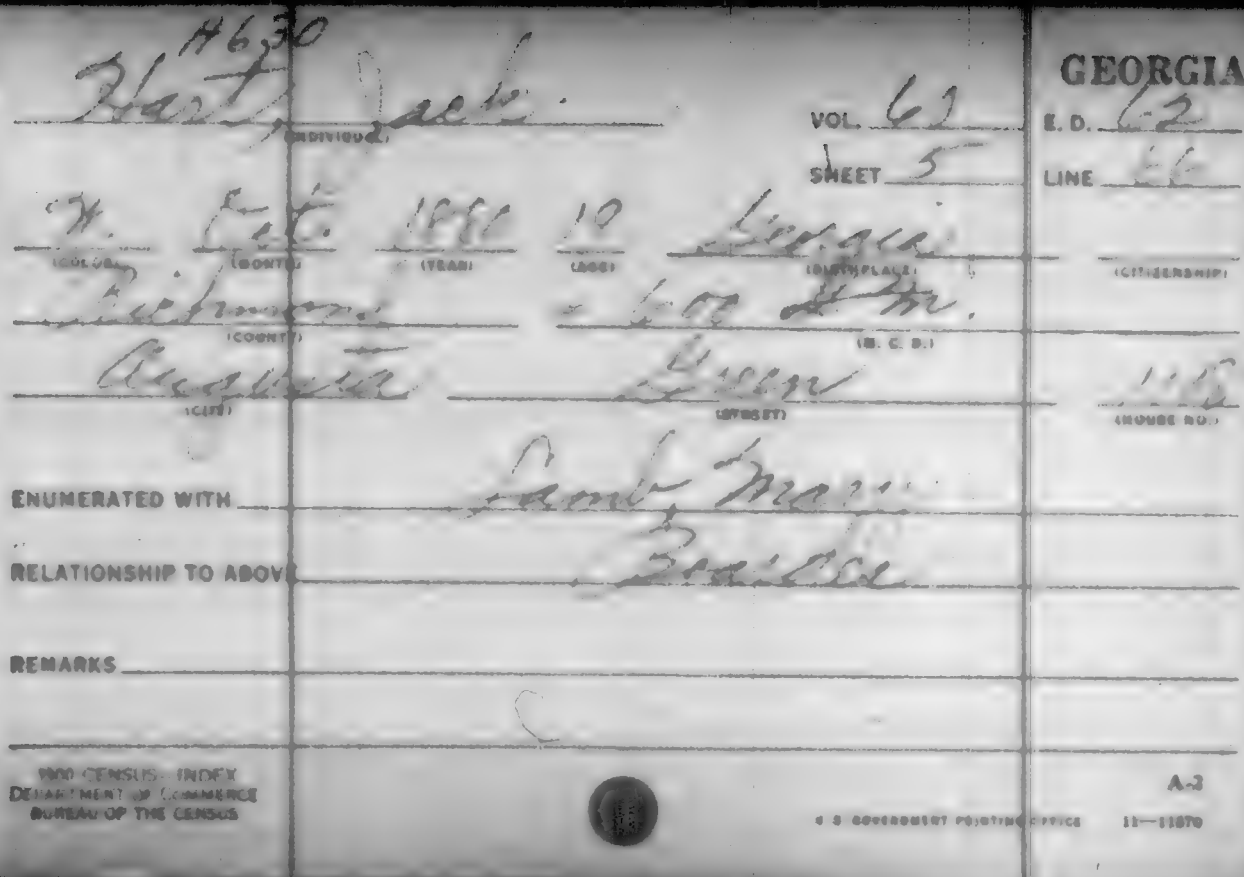 H630
GEORGIA
Hart, Jack.
(INDIVIDUAL)
VOL. 62 E. D. 62
SHEET 5 LINE
W. Feb. 1881 19 Georgia
(COLOR) (MONTH) (YEAR) (AGE) (BIRTHPLACE) (CITIZENSHIP)
Richmond 600 D M.
(COUNTY) (M. C. D.)
Augusta Green
(CITY) (STREET) (HOUSE NO.)
ENUMERATED WITH Lamb, Mary
RELATIONSHIP TO ABOVE Boarder
REMARKS
1900 CENSUS - INDEX
DEPARTMENT OF COMMERCE
BUREAU OF THE CENSUS
A-3
U S GOVERNMENT PRINTING OFFICE 11—11870